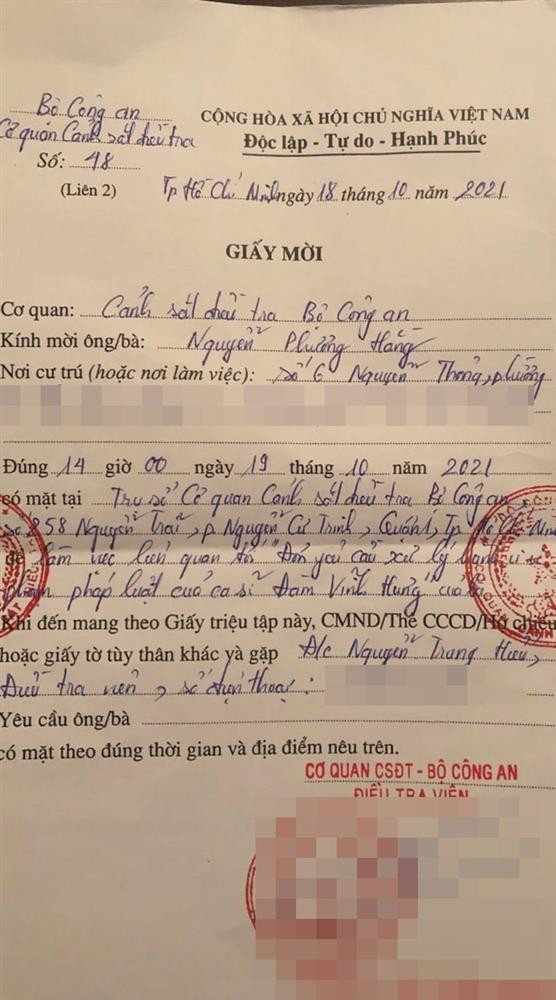 Bộ Công an
Cơ quan Cảnh sát điều tra
Số: 48
(Liên 2)
CỘNG HÒA XÃ HỘI CHỦ NGHĨA VIỆT NAM
Độc lập - Tự do - Hạnh Phúc
Tp Hồ Chí Minh ngày 18 tháng 10 năm 2021
GIẤY MỜI
Cơ quan: Cảnh sát điều tra Bộ Công an
Kính mời ông/bà: Nguyễn Phương Hằng
Nơi cư trú (hoặc nơi làm việc): số 6 Nguyễn Thông, phường
Đúng 14 giờ 00 ngày 19 tháng 10 năm 2021
có mặt tại Trụ sở Cơ quan Cảnh sát điều tra Bộ Công an,
số 258 Nguyễn Trãi, p Nguyễn Cư Trinh, Quận 1, Tp Hồ Chí Minh
để làm việc liên quan tới "Đơn yêu cầu xử lý hành vi vi
phạm pháp luật của ca sĩ Đàm Vĩnh Hưng" của bà
Khi đến mang theo Giấy triệu tập này, CMND/Thẻ CCCD/Hộ chiếu
hoặc giấy tờ tùy thân khác và gặp Đ/c Nguyễn Trung Hiếu,
Điều tra viên, số điện thoại:
Yêu cầu ông/bà
có mặt theo đúng thời gian và địa điểm nêu trên.
CƠ QUAN CSĐT - BỘ CÔNG AN
ĐIỀU TRA VIÊN